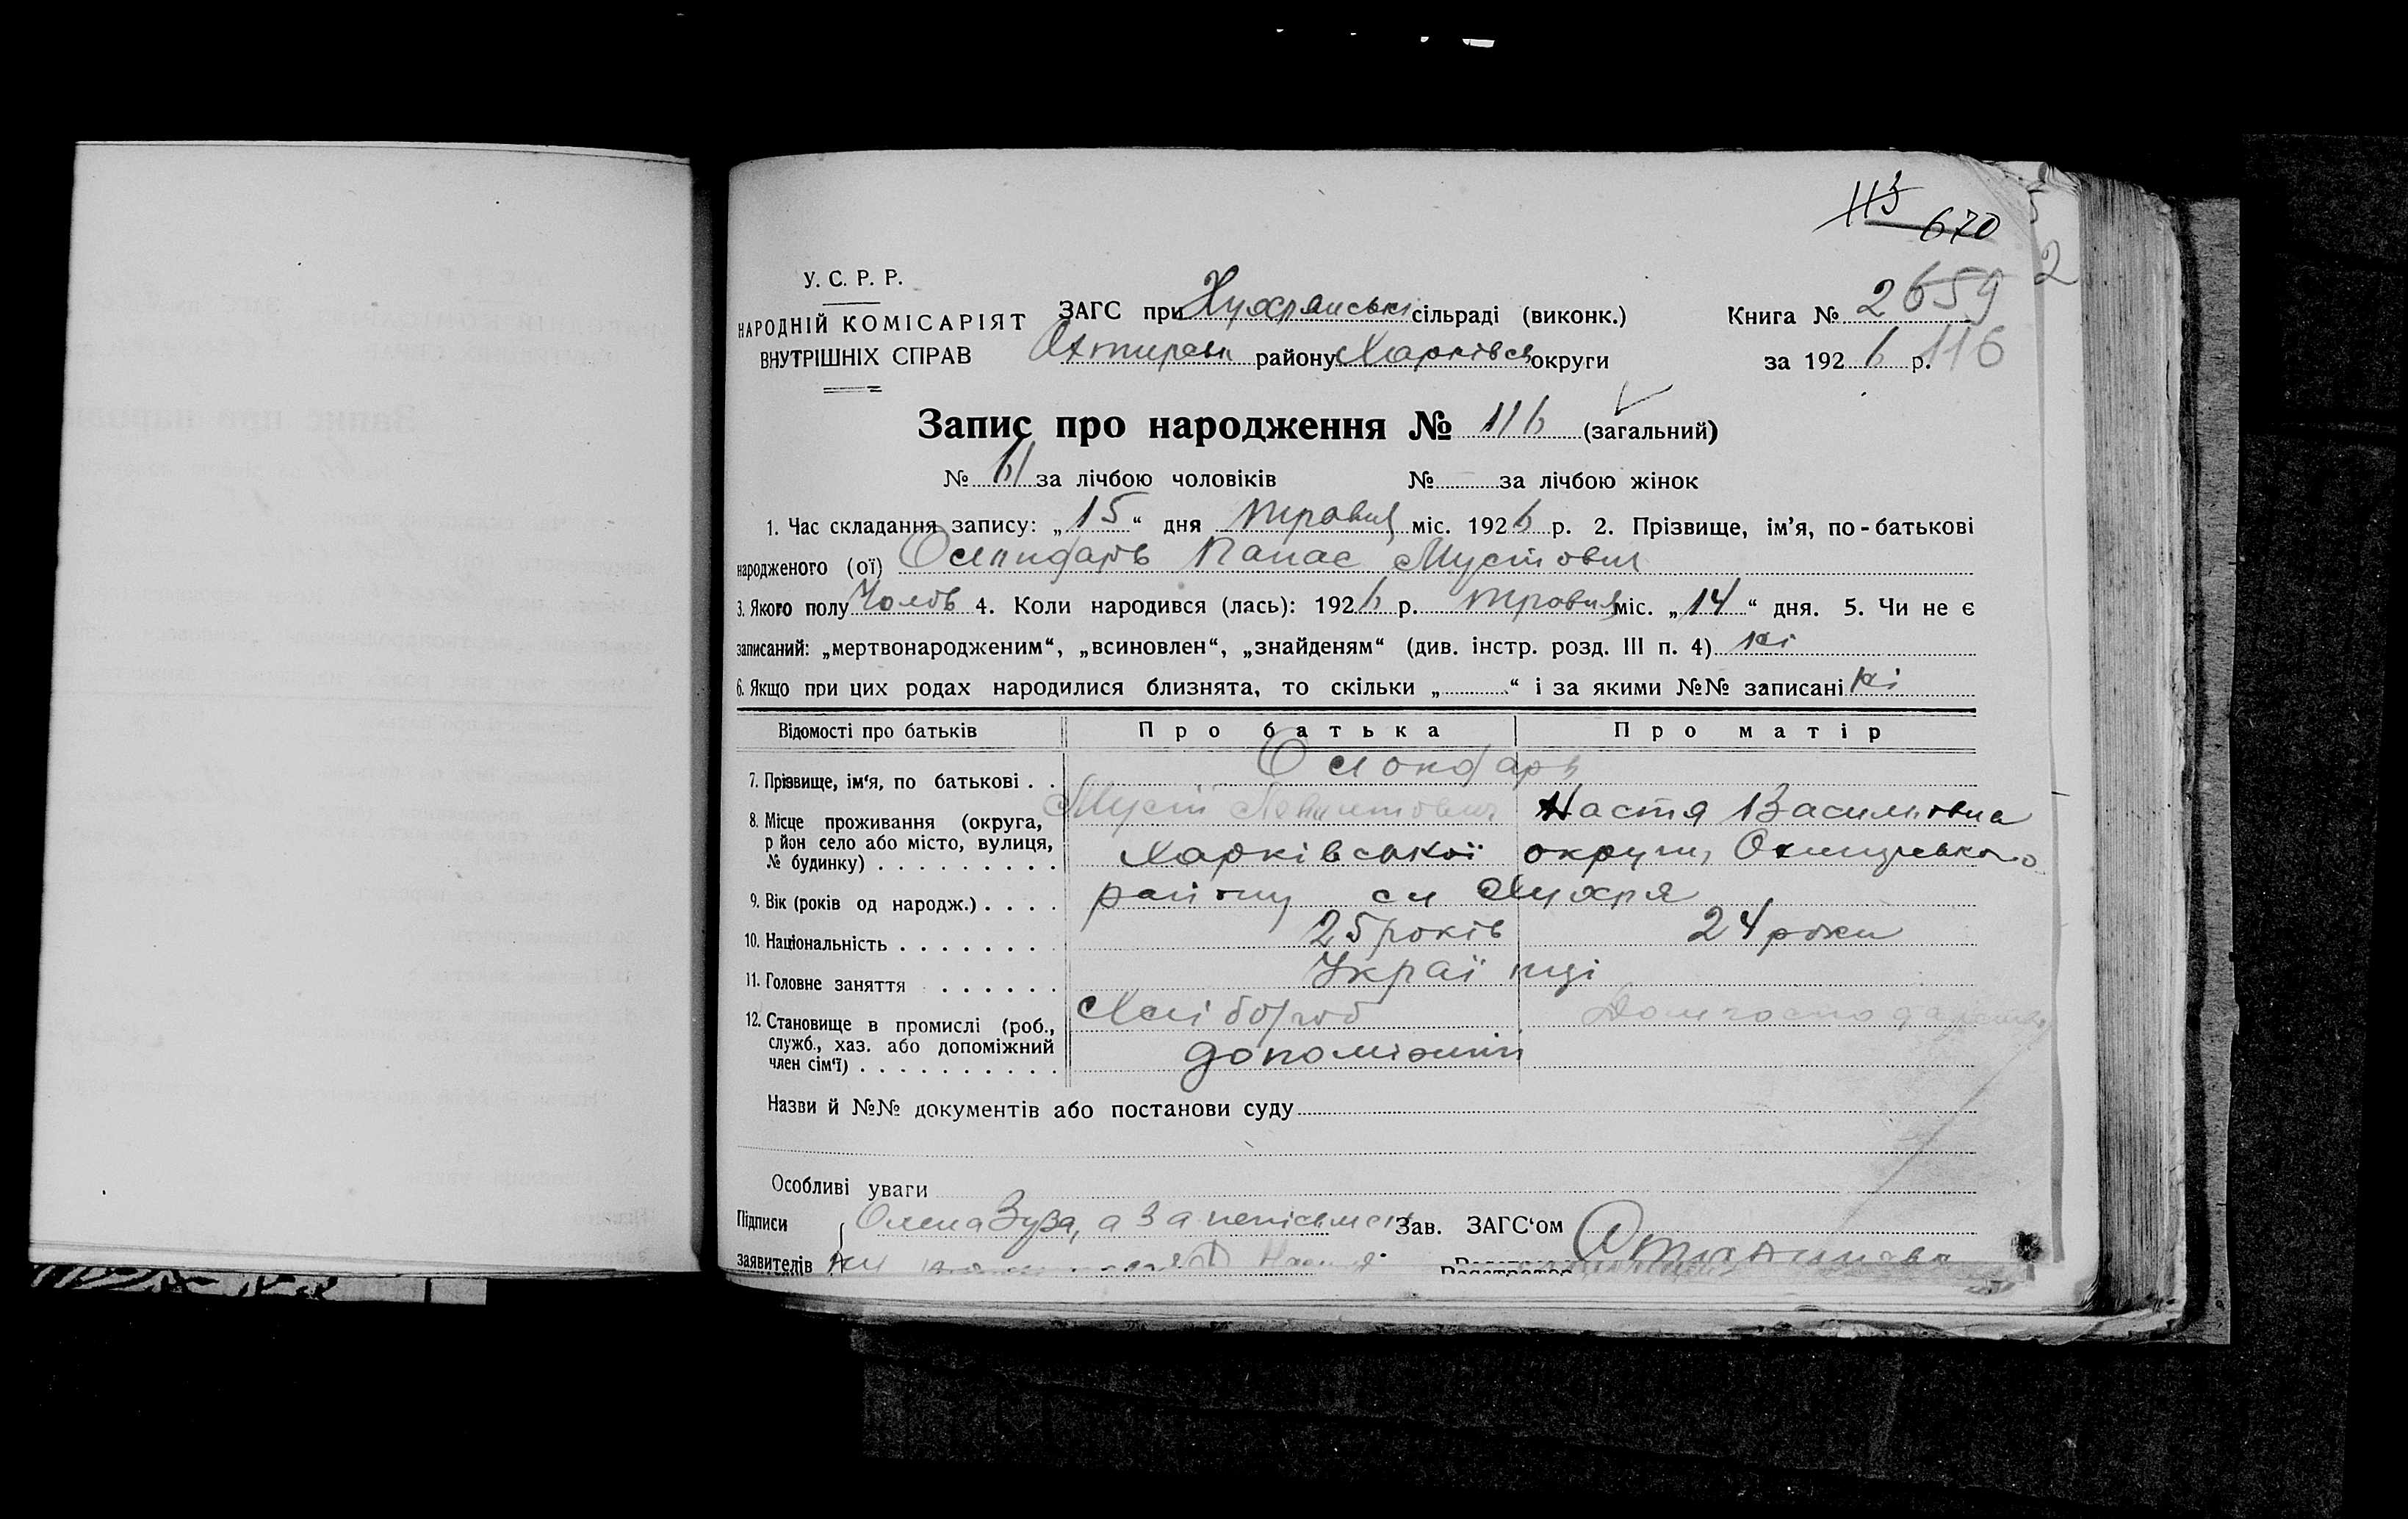 113
670
У. С. Р. Р.
НАРОДНІЙ КОМІСАРІЯТ
ВНУТРІШНІХ СПРАВ
ЗАГС при Хухрянські сільраді (виконк.)
Охтирськ району Харківсь округи
Книга № 2659
за 1926 р. 116
2
Запис про народження № 116 (загальний)
№ 61 за лічбою чоловіків № за лічбою жінок
1. Час складання запису: „15“ дня травня міс. 1926 р. 2. Прізвище, ім’я, по-батькові
народженого (ої) Панас Мусіович
3. Якого полу Чолов 4. Коли народився (лась): 1926 р. травня міс. „14“ дня. 5. Чи не є
записаний: „мертвонародженим“, „всиновлен“, „знайденям“ (див. інстр. розд. III п. 4) ні
6. Якщо при цих родах народилися близнята, то скільки „ “ і за якими №№ записані ні
Відомості про батьків Про батька Про матір
7. Прізвище, ім‘я, по батькові . .
8. Місце проживання (округа,
р йон село або місто, вулиця,
№ будинку) . . . . . . . . .
Мусій Настя Василівна
Харківської округи, Охтирського
району сл Хухря
9. Вік (років од народж.) . . . .
25 років 24 роки
10. Національність . . . . . . .
Українці
11. Головне заняття . . . . . .
Хлібороб Домгосподарство
12. Становище в промислі (роб.,
служб., хаз. або допоміжний
член сім‘ї) . . . . . . . . . .
допоміжний
Назви й №№ документів або постанови суду
Особливі уваги
Підписи
заявителів
Олена Зуза, а за неписьмен
Зав. ЗАГС‘ом
Реєстратор